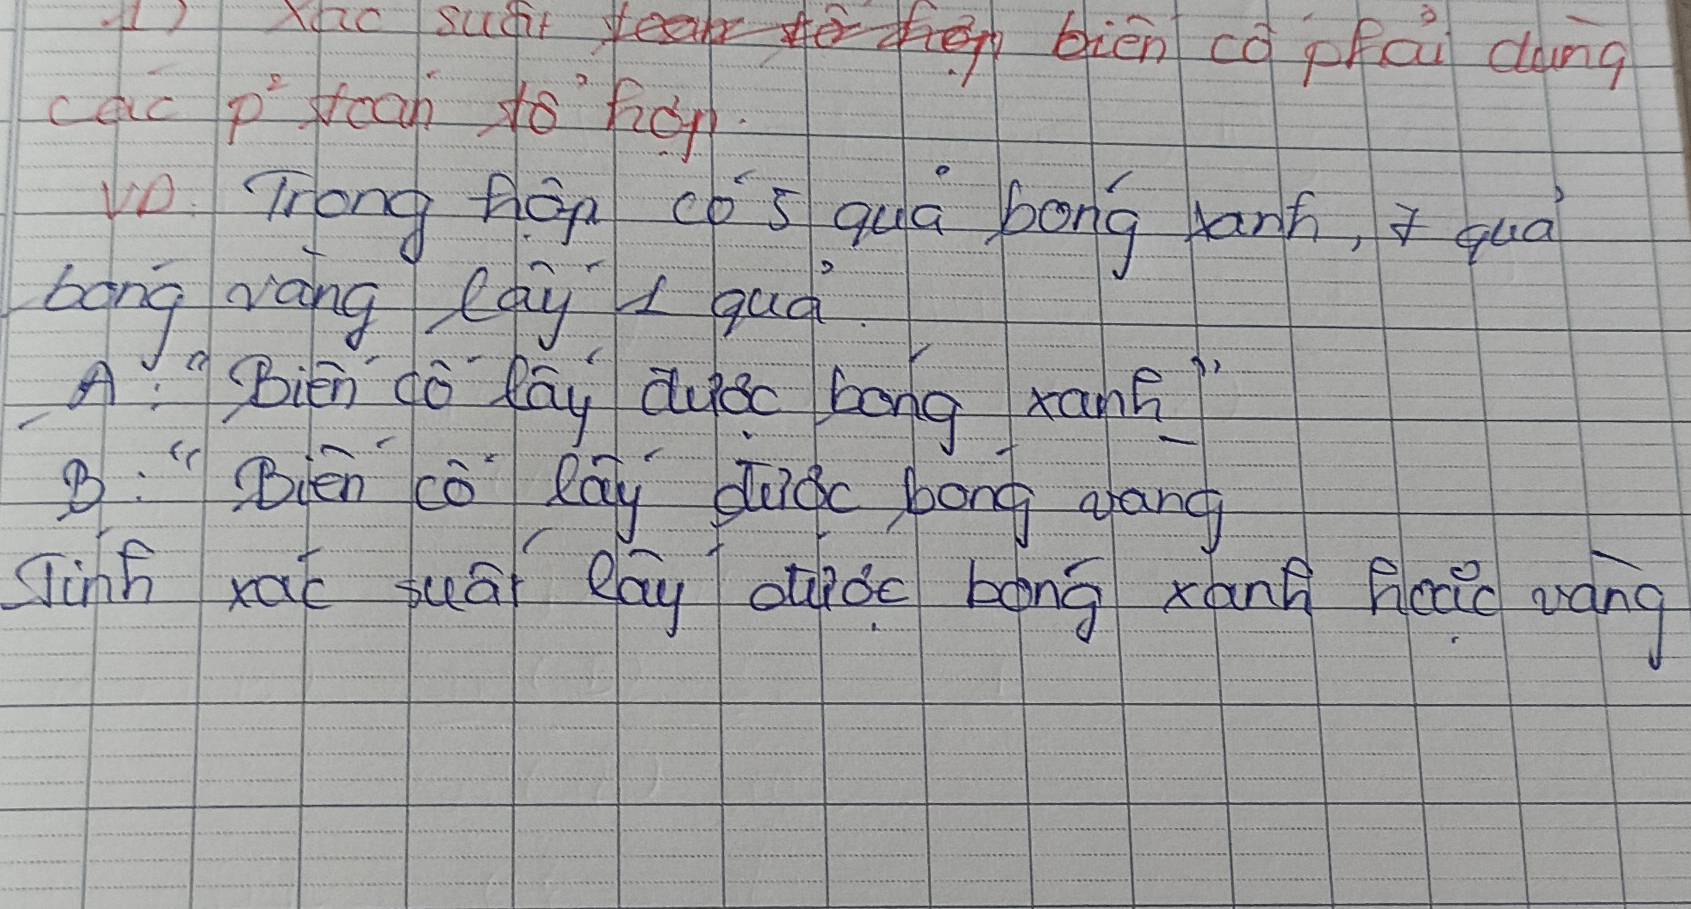 1) Xác suất toán tổ hợp biến cố phải dùng
các p² toán tổ hợp.
VD: Trong hộp có 5 quả bóng xanh, 7 quả
bóng vàng lấy 1 quả.
A: "Biến cố lấy được bóng xanh"
B: "Biến cố lấy được bóng vàng
Tính xác suất lấy được bóng xanh hoặc vàng